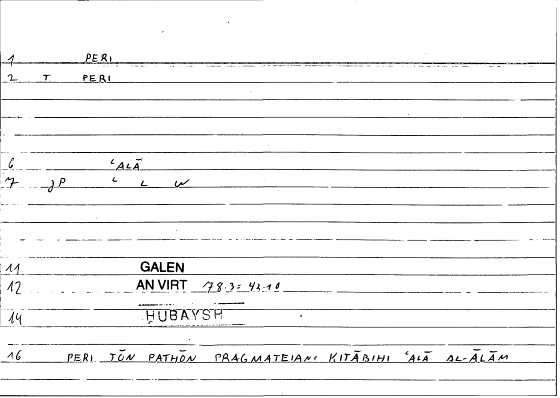 1 PERI
2 T PERI
6 ʿALĀ
7 JP ʿ L W
11 GALEN
12 AN VIRT 78.3 = 42.10
14 ḤUBAYSH
16 PERI TŌN PATHŌN PRAGMATEIAN: KITĀBIHI ʿALĀ AL-ĀLĀM